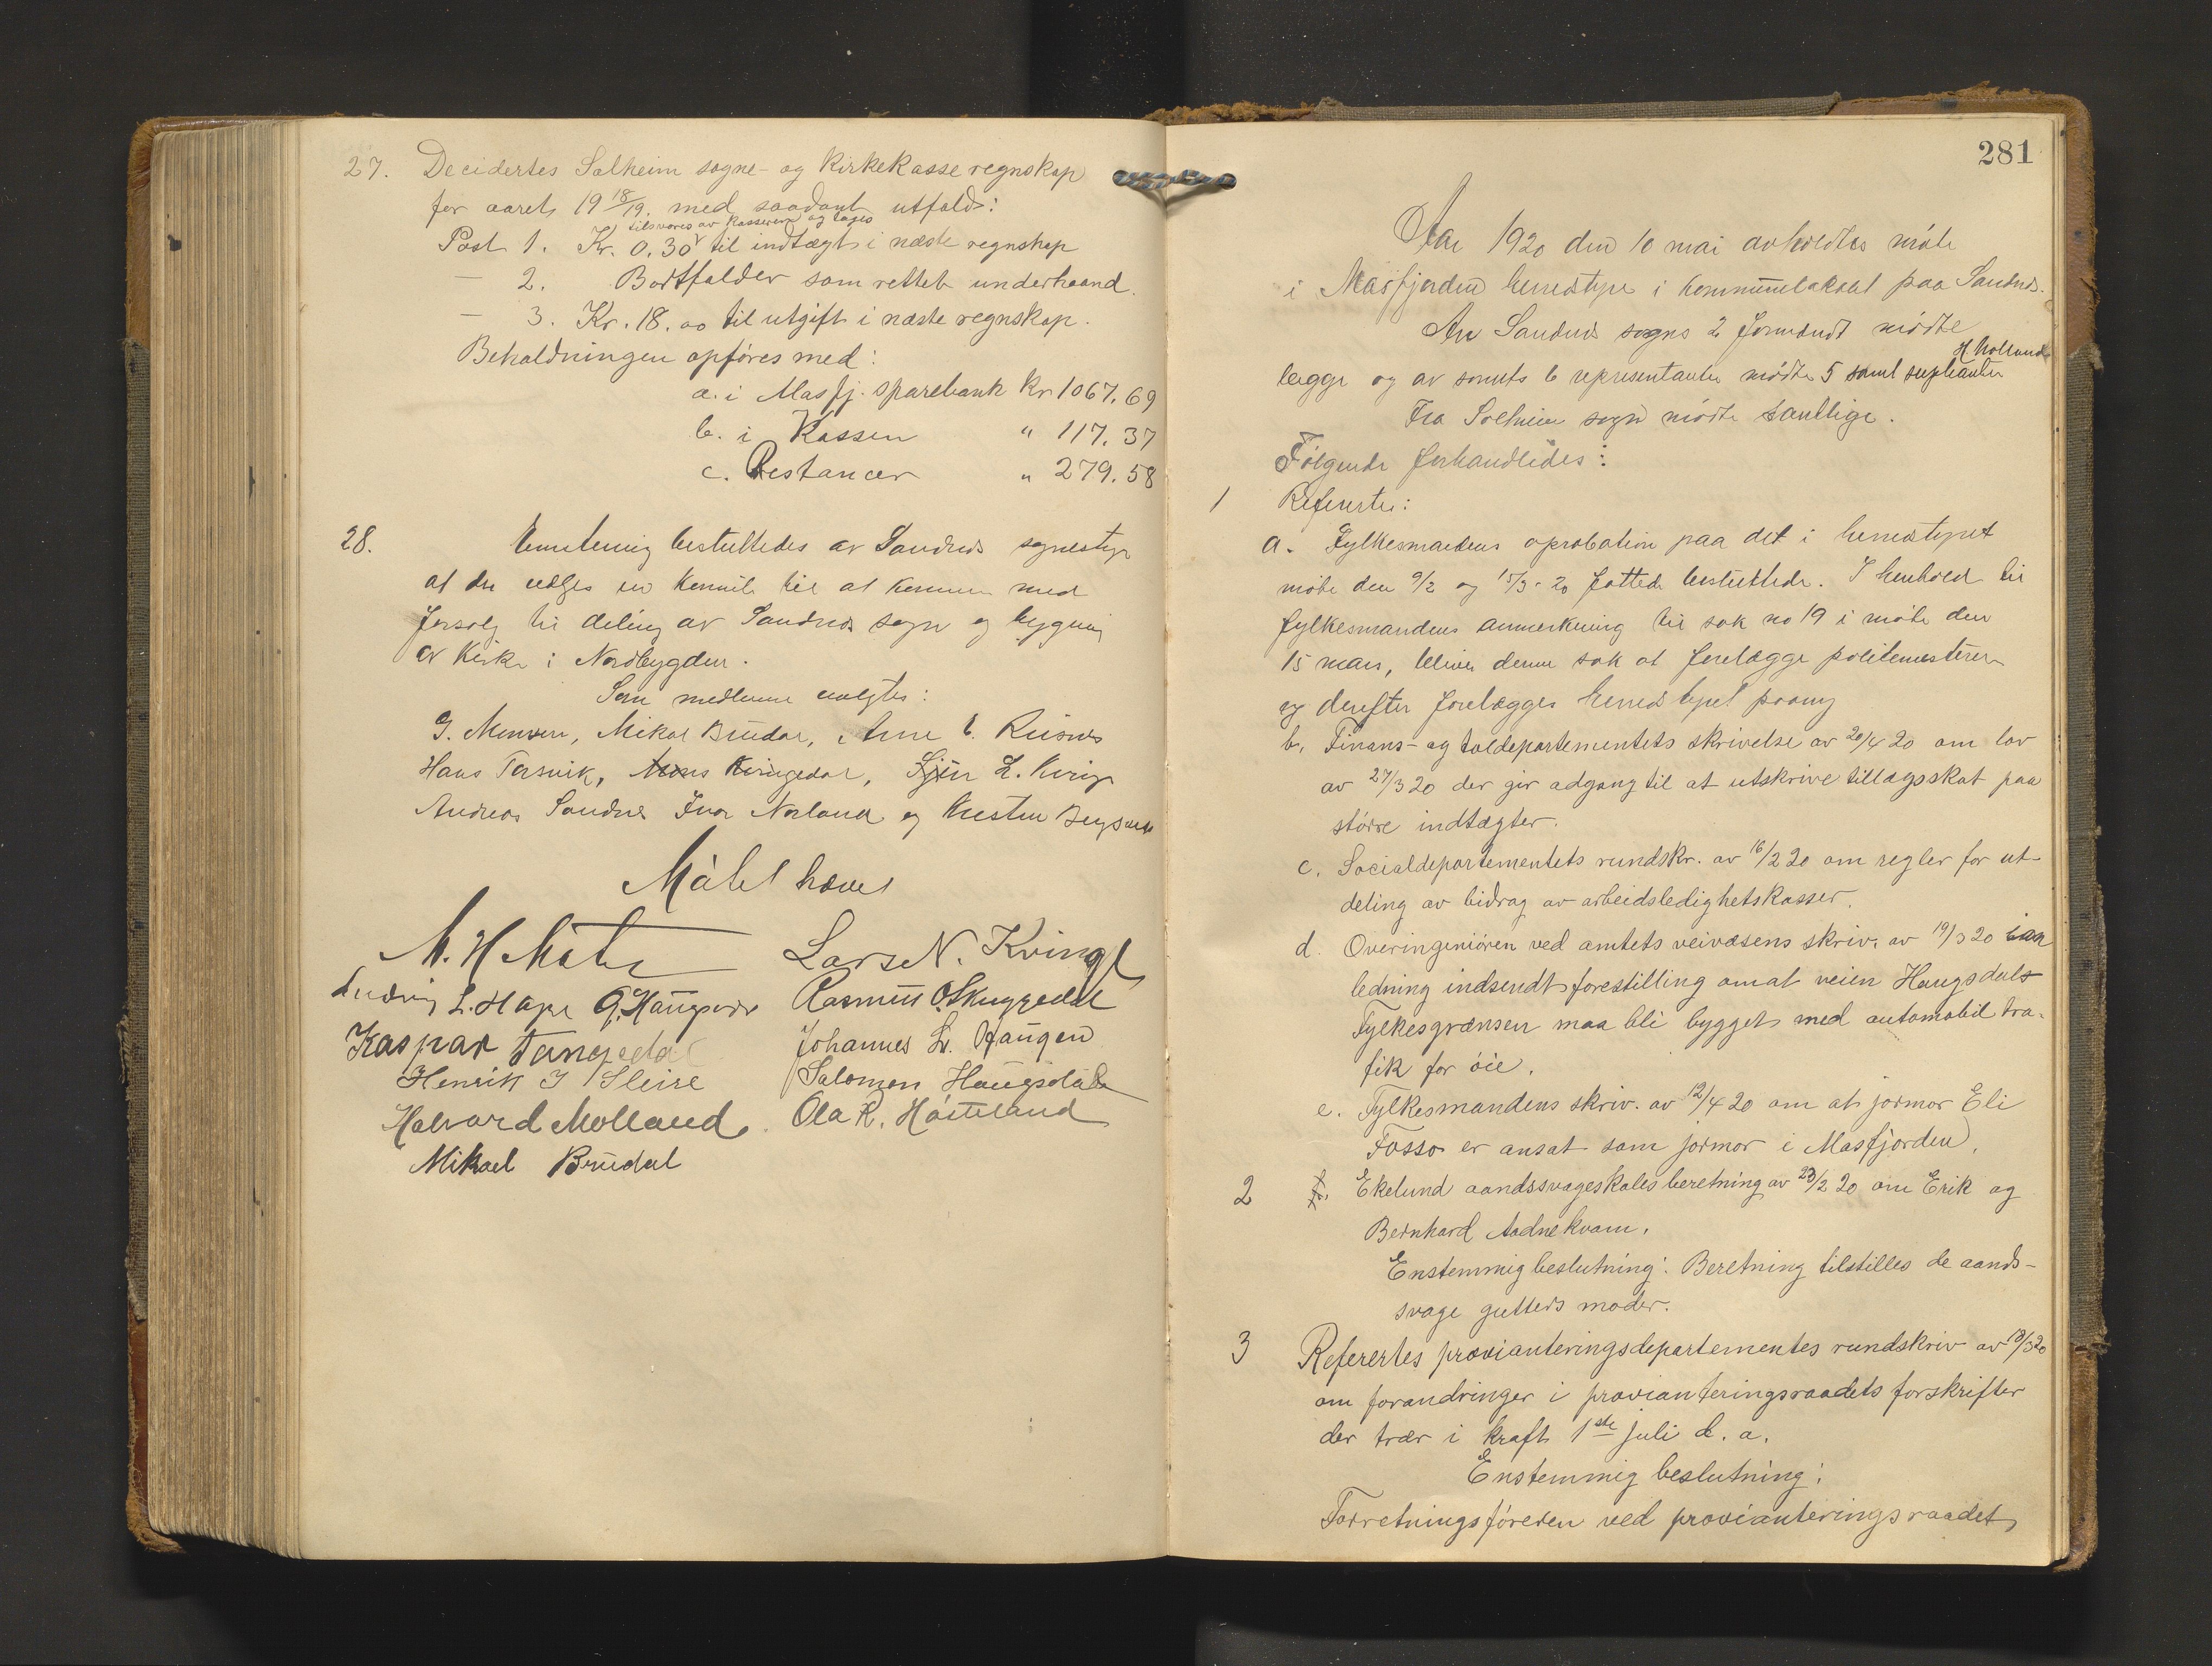 27. Decidertes Solheim sogne- og Kirkekasse regnskap
for aaret 19 18/19. med saadant utfald:
tilsvares av kasseren og tages
Post 1. Kr. 0.30 til indtægt i næste regnskap
— 2. Bortfalder som rettet underhaand.
— 3. Kr. 18.00 til utgift i næste regnskap.
Beholdningen opføres med:
a. i Masfj. sparebank Kr 1067.69
b. i Kassen " 117.37
c. Restancer " 279.58
28. besluttedes av Sandnes sognestyre
at der vælges en komite til at komme med
forslag til deling av Sandnes sogn og bygning
av Kirke i Nordbygden.
Som medlemmer valgtes:
G. Mikal Brudal, Arne
Hans Tersvik, Mons Kvingedal, L. Kvinge
Andreas Sandnes Ivar Norland og
Møtet hævet
M. H Matre Lars N. Kvinge
Ludvig L. Hope Rasmus O. Skuggedal
Kaspar Tangedal Johannes L. Haugen
Henrik J Sleire Salomon Haugsdal
Halvard Molland. Ola R. Høsteland
Mikael Brudal
281
Aar 1920 den 10 mai avholdtes møte
i Masfjorden herredstyre i kommunelokalet paa Sandnes.
Av Sandnes sogns 2 formænd møtte
H. Molland
begge og av sognets 6 representanter møtte 5 samt supleanten
Fra Solheim sogn møtte samtlige.
Følgende forhandledes:
1 Refertes:
a. Fylkesmandens aprobation paa det i herredstyret
møte den 9/2 og 15/3-20 fattede besluttede. I henhold til
fylkesmandens anmerkning til sak no 19 i møte den
15 mars, bliver denne sak at forelægge politimesteren
og derefter forelægges herredstyret paany
b. Finans- og toldepartementets skrivelse av 20/4 20 om lov
av 27/3 20 der gir adgang til at utskrive tillægsskat paa
større indtægter.
c. Socialdepartementets rundskr. av 16/2 20 om regler for ut-
deling av bidrag av arbeidsledighetskasser.
d. Overingeniøren ved amtets veivæsens skriv. av 19/3 20 i an
ledning indsendt forestilling om at veien Haugsdal-
Fylkesgrænsen maa bli bygget med automobil tra-
fik for øie.
e. Fylkesmandens skriv. av 12/4 20 om at jormor Eli
Fosso er ansat som jormor i Masfjorden.
2 f. Ekelund aandssvageskoles beretning av 23/2 20 om Erik og
Bernhard Aadnekvam.
Enstemmig beslutning: Beretning tilstilles de aands-
svage gutters moder.
3 Referertes provianteringsdepartementes rundskriv av 13/3 20
om forandringer i provianteringsraadets forskrifter
der trær i kraft 1ste juli d. a.
Enstemmig beslutning:
Forretningsføreren ved provianteringsraadet